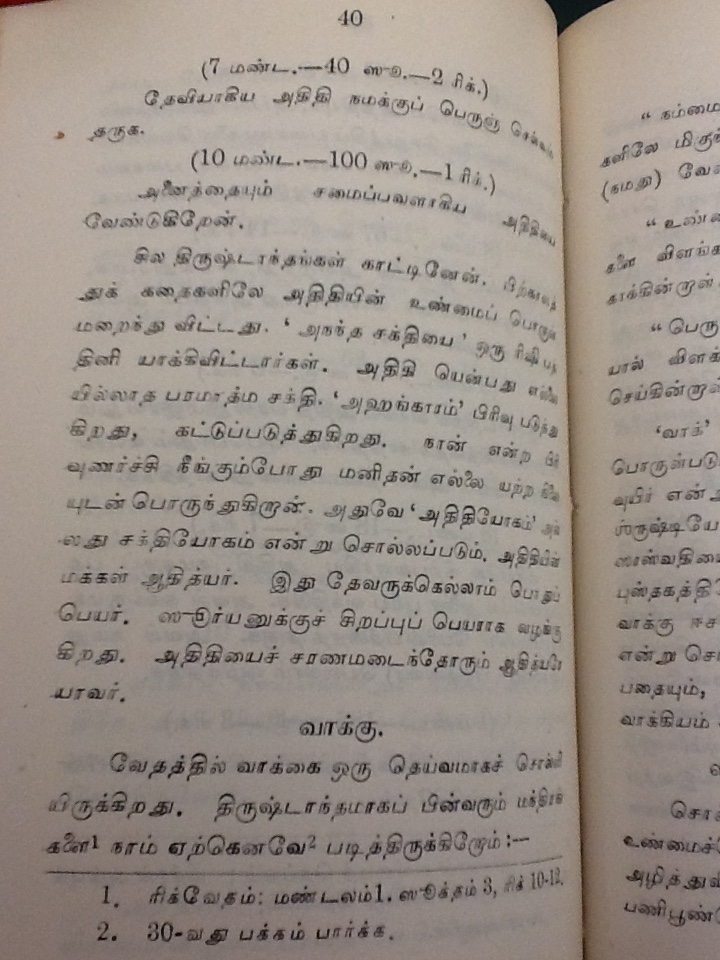 40
(7 மண்ட.—40 ஸூ.—2 ரிக்.)
தேவியாகிய அதிதி நமக்குப் பெருஞ் செல்வம்
தருக.
(10 மண்ட.—100 ஸூ.—1 ரிக்.)
அனைத்தையும் சமைப்பவளாகிய அதிதியை
வேண்டுகிறேன்.
சில திருஷ்டாந்தங்கள் காட்டினேன். பிற்காலத்
துக் கதைகளிலே அதிதியின் உண்மைப் பொருள்
மறைந்து விட்டது. ‘அநந்த சக்தியை’ ஒரு ரிஷி பத்
தினி யாக்கிவிட்டார்கள். அதிதி யென்பது எல்லை
யில்லாத பரமாத்ம சக்தி. ‘அஹங்காரம்’ பிரிவு படுத்து
கிறது, கட்டுப்படுத்துகிறது. நான் என்ற பிரி
வுணர்ச்சி நீங்கும்போது மனிதன் எல்லை யற்ற
யுடன் பொருந்துகிறான். அதுவே ‘அதிதியோகம்’ அல்
லது சக்தியோகம் என்று சொல்லப்படும். அதிதியின்
மக்கள் ஆதித்யர். இது தேவருக்கெல்லாம் பொதுப்
பெயர். ஸூர்யனுக்குச் சிறப்புப் பெயராக வழங்கு
கிறது. அதிதியைச் சரணமடைந்தோரும் ஆதித்யரே
யாவர்.
வாக்கு.
வேதத்தில் வாக்கை ஒரு தெய்வமாகச் சொல்லி
யிருக்கிறது. திருஷ்டாந்தமாகப் பின்வரும் மந்திரங்
களை1 நாம் ஏற்கெனவே2 படித்திருக்கிறோம்:—
1. ரிக்வேதம்: மண்டலம்1. ஸூக்தம் 3, ரிக் 10-12.
2. 30-வது பக்கம் பார்க்க.
“ நம்மை
களிலே
(நமது)
“ உண்
களை
காக்கின்றாள்
“ பெரு
யால்
செய்கின்றாள்
‘வாக்’
பொருள்பட
வுயிர் என்
ஸ்ருஷ்டியே
ஸாஸ்வதி
புஸ்தகத்தி
வாக்கு ஈச
என்று
பதையும்,
வாக்கியம்
சொ
உண்மை
அழித்து
பணிபூண்